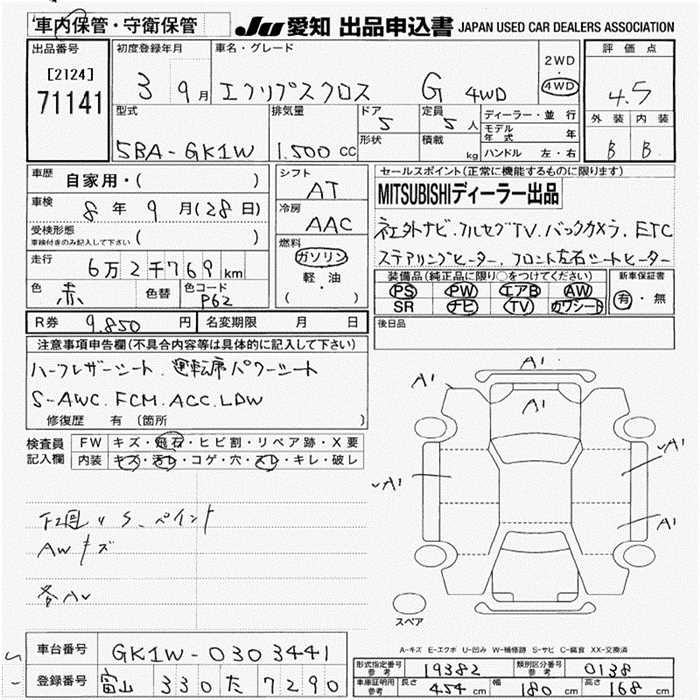 車内保管・守衛保管
JU 愛知 出品申込書 JAPAN USED CAR DEALERS ASSOCIATION
出品番号
[2124]
71141
初度登録年月
3 9月
車名・グレード
エクリプスクロス G 4WD
2WD
4WD
評価点
4.5
外装 内装
B B
型式
5BA-GK1W
排気量
1.500cc
ドア
5
形状
定員
5人
積載
kg
ディーラー・並行
モデル年式 年
ハンドル 左・右
車歴 自家用・( )
車検 8年9月(28日)
受検形態
車検付きのみ記入して下さい ( )
走行 6万2千769km
色 赤 色替 色コード P62
R券 9.850円 名変期限 月 日
シフト
AT
冷房
AAC
燃料
ガソリン
軽・油
( )
セールスポイント(正常に機能するものに限ります)
MITSUBISHIディーラー出品
社外ナビ.フルセグTV.バックカメラ.ETC
ステアリングヒーター.フロント左右シートヒーター
装備品(純正品に限り○をつけてください)
PS PW エアB AW
SR ナビ TV カワシート
新車保証書
有・無
後日品
注意事項申告欄(不具合内容等は具体的に記入して下さい)
ハーフレザーシート.運転席パワーシート
S-AWC.FCM.ACC.LDW
修復歴 有(箇所 )
検査員記入欄
FW キズ・飛石・ヒビ割・リペア跡・X要
内装 キズ・汚レ・コゲ・穴・スレ・キレ・破レ
S.ペイント
AWキズ
A1
A1
A1
A1
A1
A1
スペア
A-キズ E-エクボ U-凹み W-補修跡 S-サビ C-腐食 XX-交換済
車台番号 GK1W-0303441
登録番号 富山 330 た 7290
形式指定番号 参考 19382 類別区分番号 参考 0138
車庫証明用 参考 長さ 4.54cm 幅 180cm 高さ 168cm